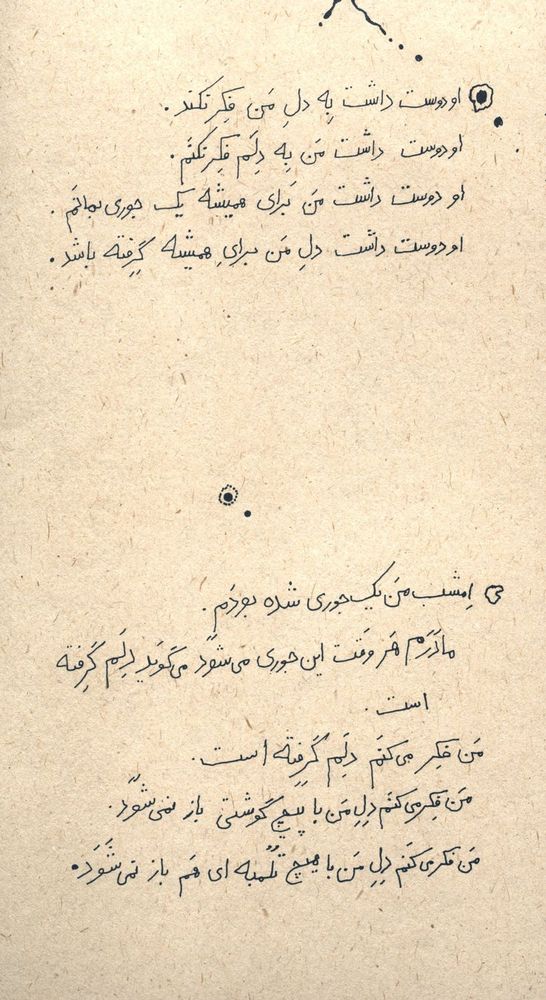 او دوست داشت بِه دلِ مَن فِکر نکند.
او دوست داشت مَن بِه دِلَم فِکر نَکنَم.
او دوست داشت مَن بَرای همیشه یک جوری بمانَم.
او دوست داشت دلِ مَن برایِ همیشه گِرِفته باشد.
اِمشب مَن یک جوری شده بودَم.
مادَرَم هَر وَقت این جوری می‌شوَد می‌گویَد دِلَم گِرِفته
است.
مَن فِکر می‌کنَم دلَم گِرِفته است.
مَن فِکر می‌کنَم دِلِ مَن با پیچ گوشتی باز نِمی‌شوَد.
مَن فکر می‌کنَم دِلِ مَن با هیچ تُلُمبه ای هَم باز نِمی‌شَوَد.